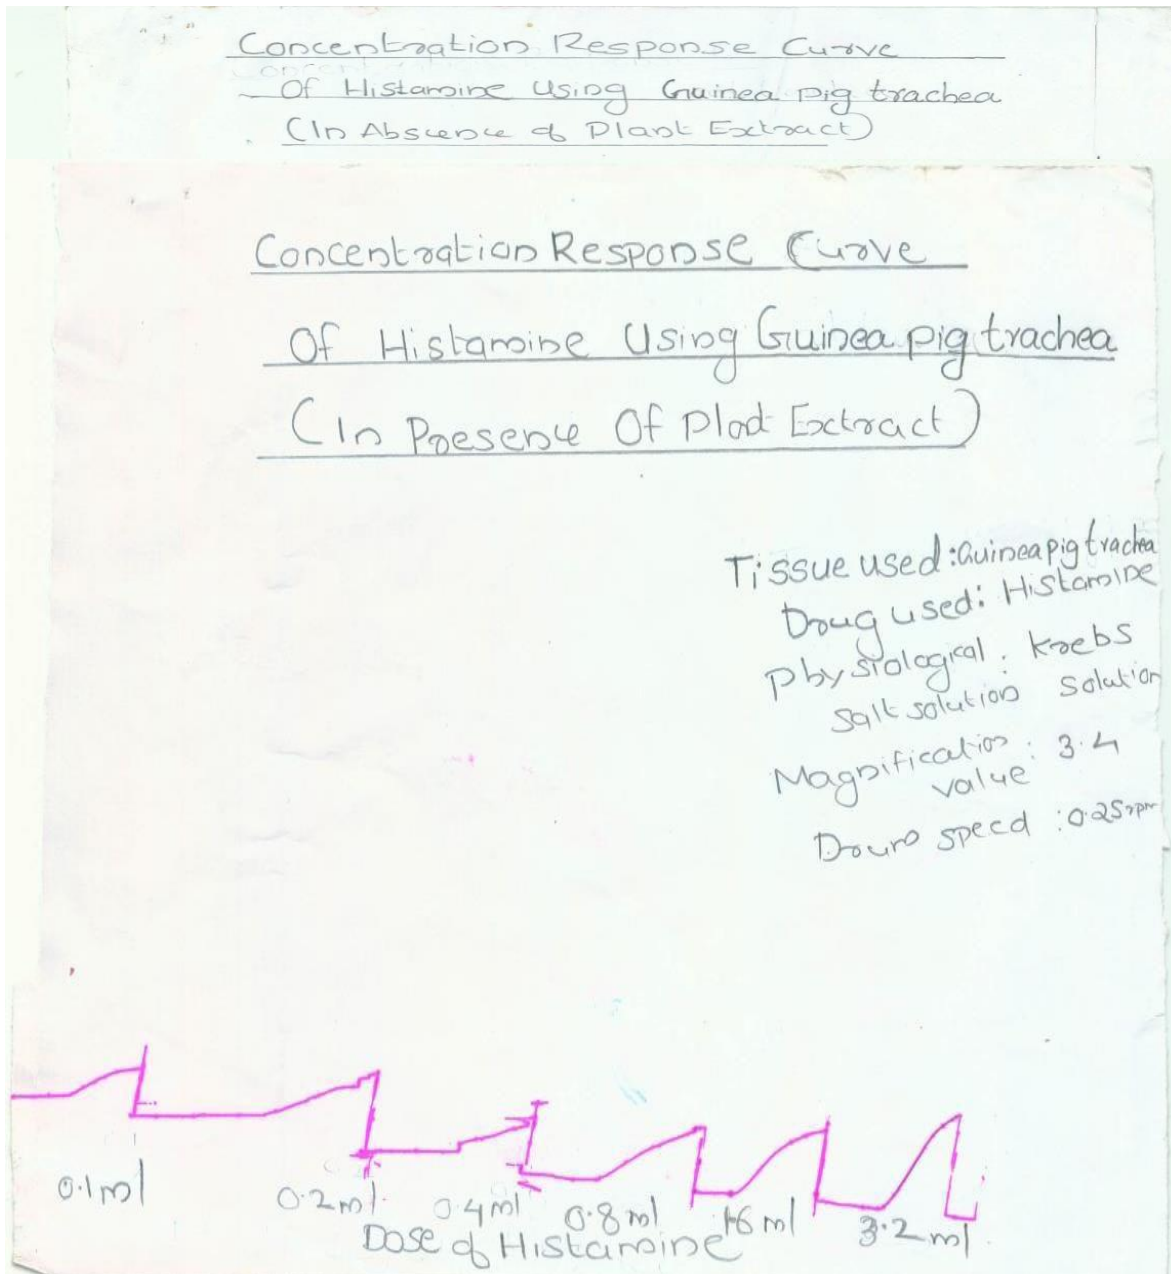 Concentration Response Curve
Of Histamine Using Guinea pig trachea
(In Abscence of Plant Extract)
Concentration Response Curve
Of Histamine Using Guinea pig trachea
(In Presence Of Plant Extract)
Tissue used: Guinea pig trachea
Drug used: Histamine
physiological : Krebs
salt solution solution
Magnification : 3.4
value
Drum speed : 0.25rpm
0.1ml 0.2ml 0.4ml 0.8ml 1.6ml 3.2ml
Dose of Histamine